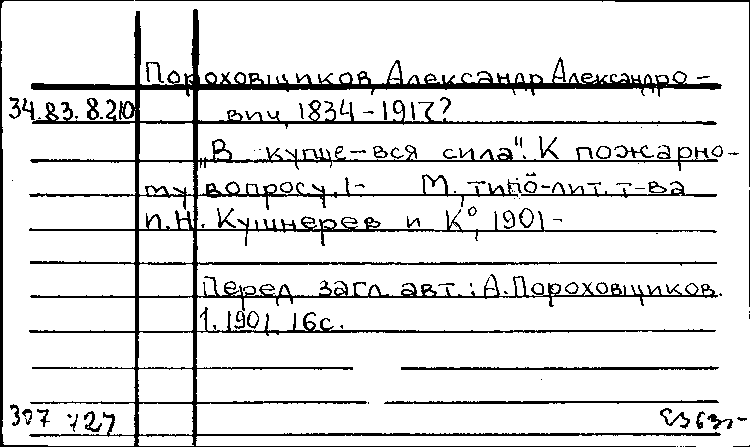 Пороховщиков, Александр Александро-
34.83.8.210 вич, 1834-1917?
„В купще-вся сила". К пожарно-
му вопросу. 1- М., типо-лит. т-ва
И.Н. Кушнерев и К°, 1901-
Перед загл. авт.: А. Пороховщиков.
1. 1901. 16 с.
307 727